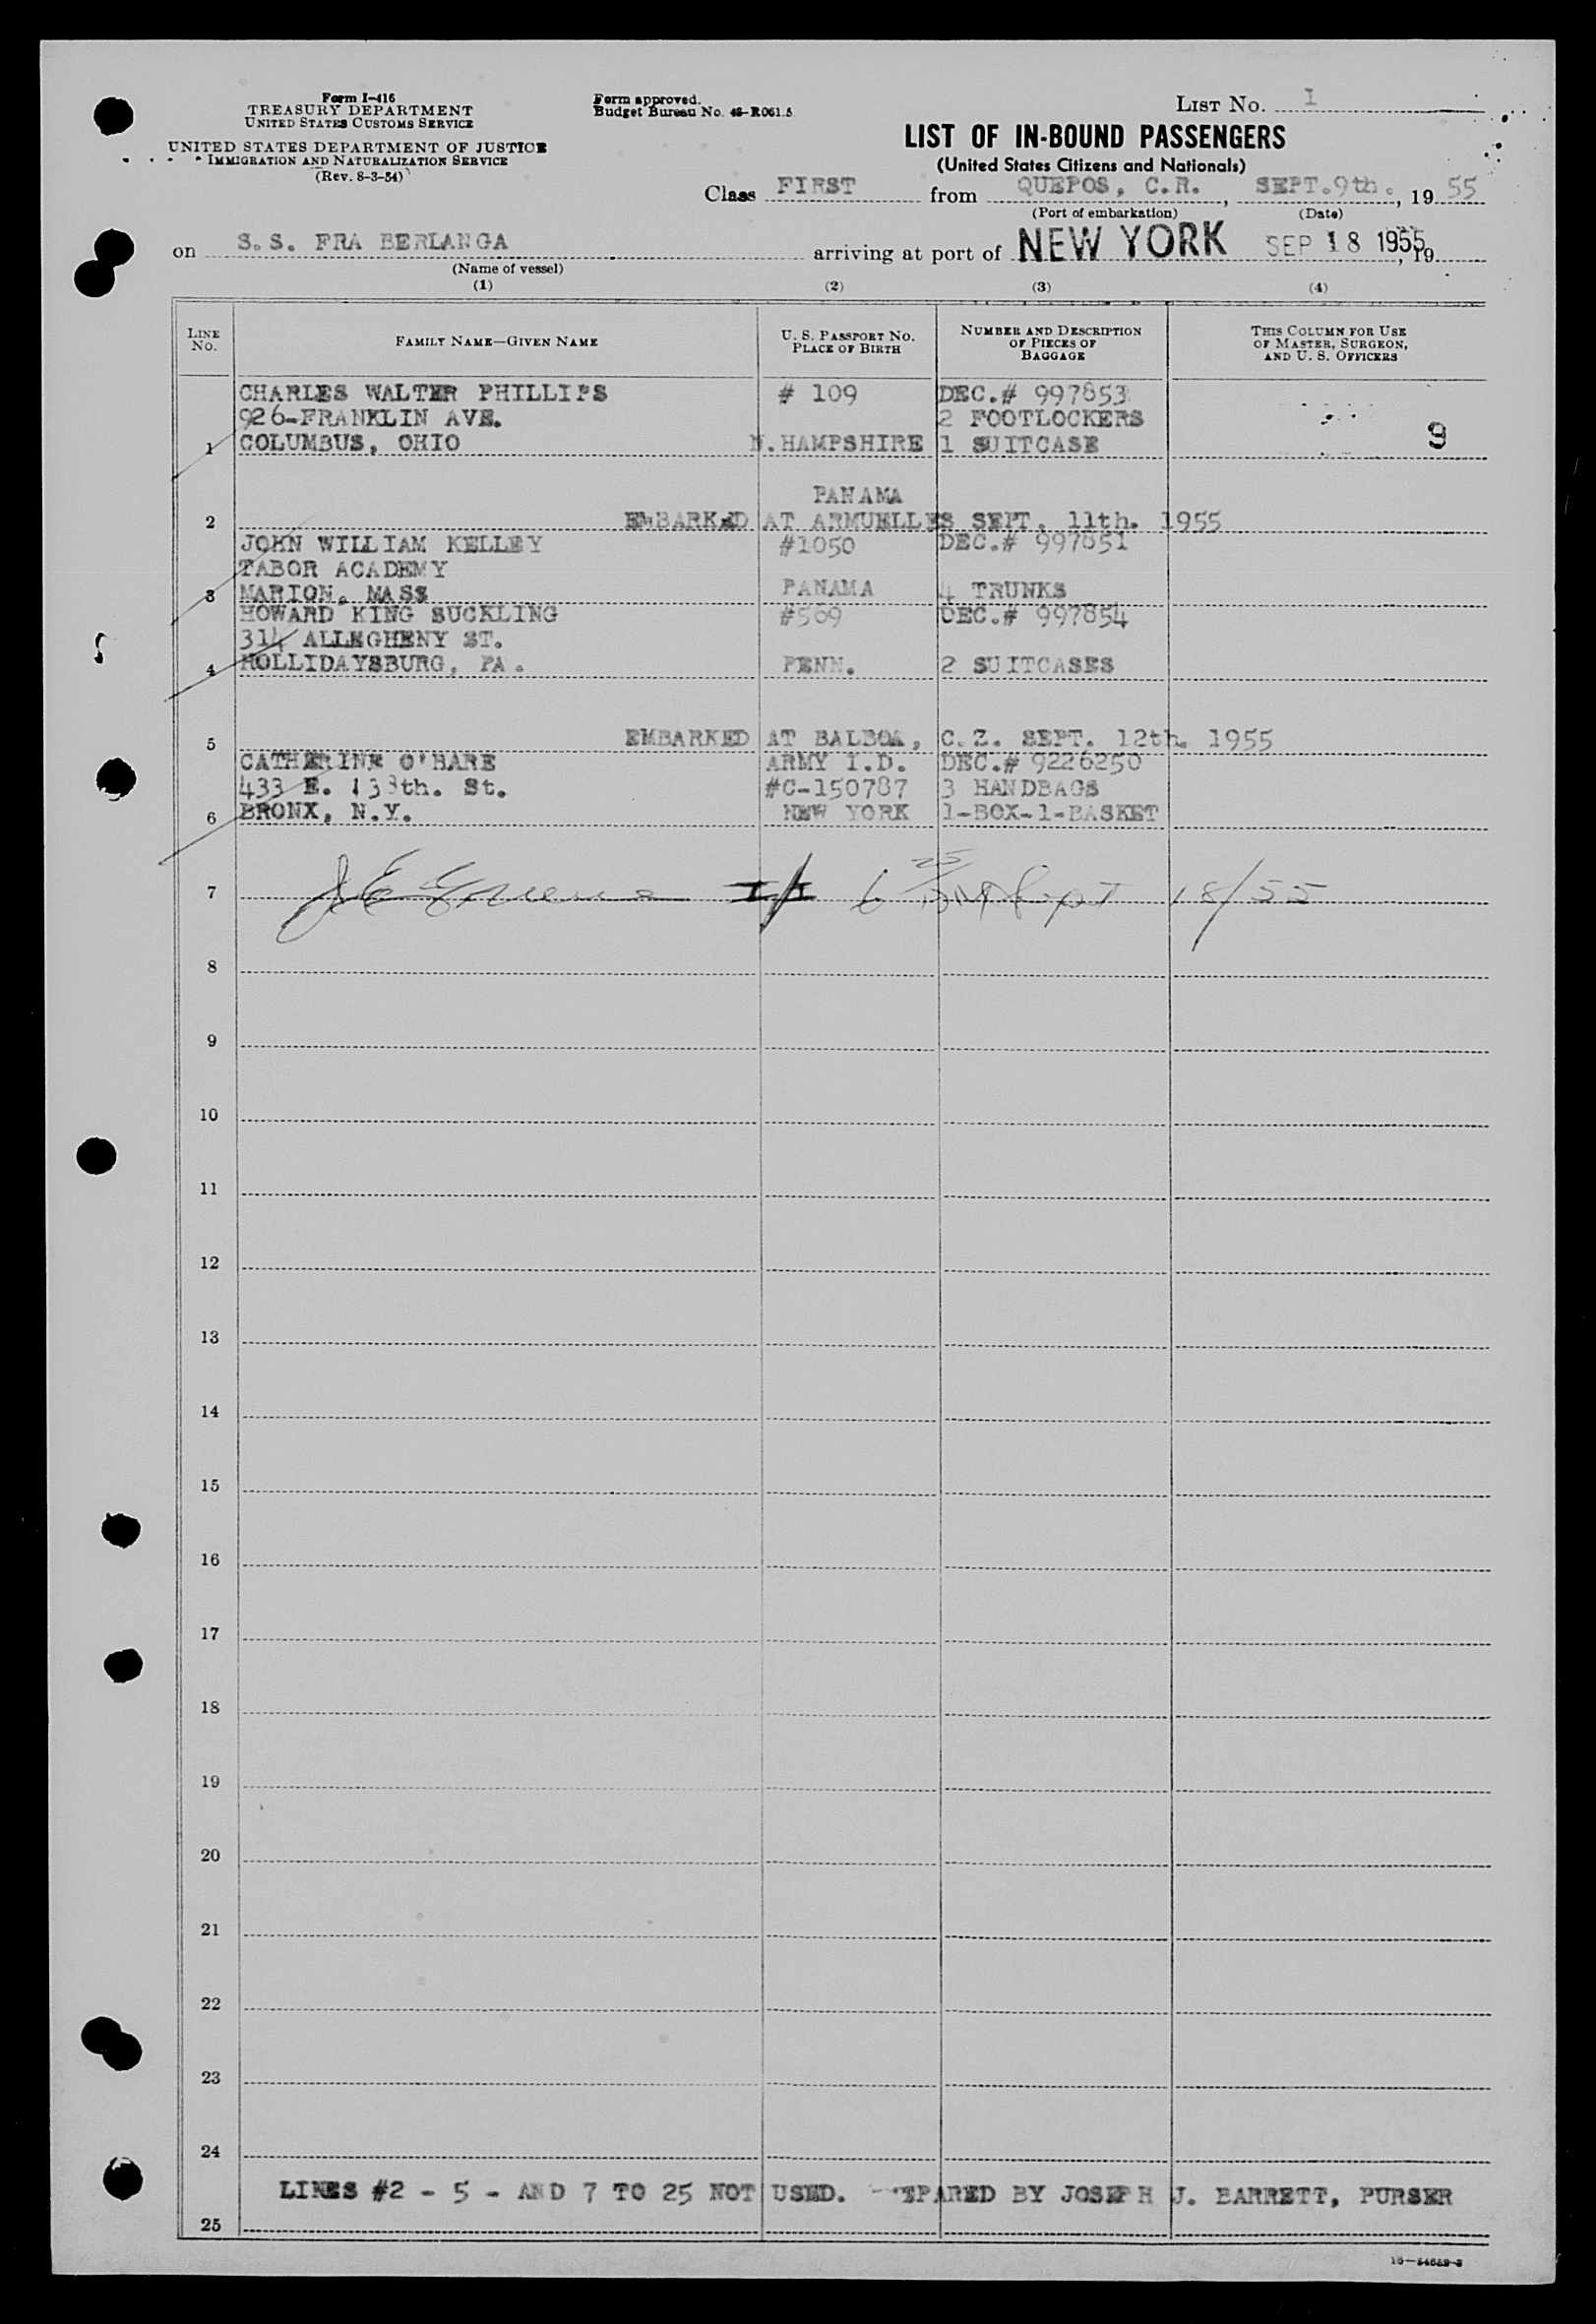 Form I-416
TREASURY DEPARTMENT
UNITED STATES CUSTOMS SERVICE
UNITED STATES DEPARTMENT OF JUSTICE
IMMIGRATION AND NATURALIZATION SERVICE
(Rev. 8-3-54)
Form approved.
Budget Bureau No. 43-R061.5
LIST No. 1
LIST OF IN-BOUND PASSENGERS
(United States Citizens and Nationals)
Class FIRST from QUEPOS, C.R. , SEPT.9th. , 19 55
(Port of embarkation) (Date)
on S.S. FRA BERLANGA arriving at port of NEW YORK SEP 18 1955, 19
(Name of vessel)
(1) (2) (3) (4)
LINE No. FAMILY NAME—GIVEN NAME U. S. PASSPORT No. PLACE OF BIRTH NUMBER AND DESCRIPTION OF PIECES OF BAGGAGE THIS COLUMN FOR USE OF MASTER, SURGEON, AND U. S. OFFICERS
CHARLES WALTER PHILLIPS # 109 DEC.# 997853
926-FRANKLIN AVE. 2 FOOTLOCKERS
1 COLUMBUS, OHIO N.HAMPSHIRE 1 SUITCASE 9
PANAMA
2 EMBARKED AT ARMUELLES SEPT. 11th. 1955
JOHN WILLIAM KELLEY #1050 DEC.# 997851
TABOR ACADEMY
3 MARION, MASS PANAMA 4 TRUNKS
HOWARD KING SUCKLING #569 DEC.# 997854
314 ALLEGHENY ST.
4 HOLLIDAYSBURG, PA. PENN. 2 SUITCASES
5 EMBARKED AT BALBOA, C.Z. SEPT. 12th. 1955
CATHERINE O'HARE ARMY I.D. DEC.# 9226250
433 E. 138th. St. #C-150787 3 HANDBAGS
6 BRONX, N.Y. NEW YORK 1-BOX-1-BASKET
7 I/I 6 25 Sept 18/55
8
9
10
11
12
13
14
15
16
17
18
19
20
21
22
23
24
LINES #2 - 5 - AND 7 TO 25 NOT USED. PREPARED BY JOSEPH J. BARRETT, PURSER
25